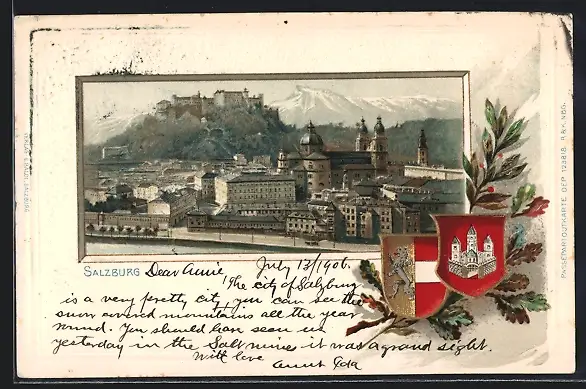 SALZBURG
Dear Annie July 13/1906.
The city of Salzburg
is a very pretty city, you can see the
snow around mountains all the year
round. You should have seen us
yesterday in the Salt mine it was a grand sight.
With love
Aunt Ida
PASSEPARTOUTKARTE DEP 123818. R. & K. NBG.